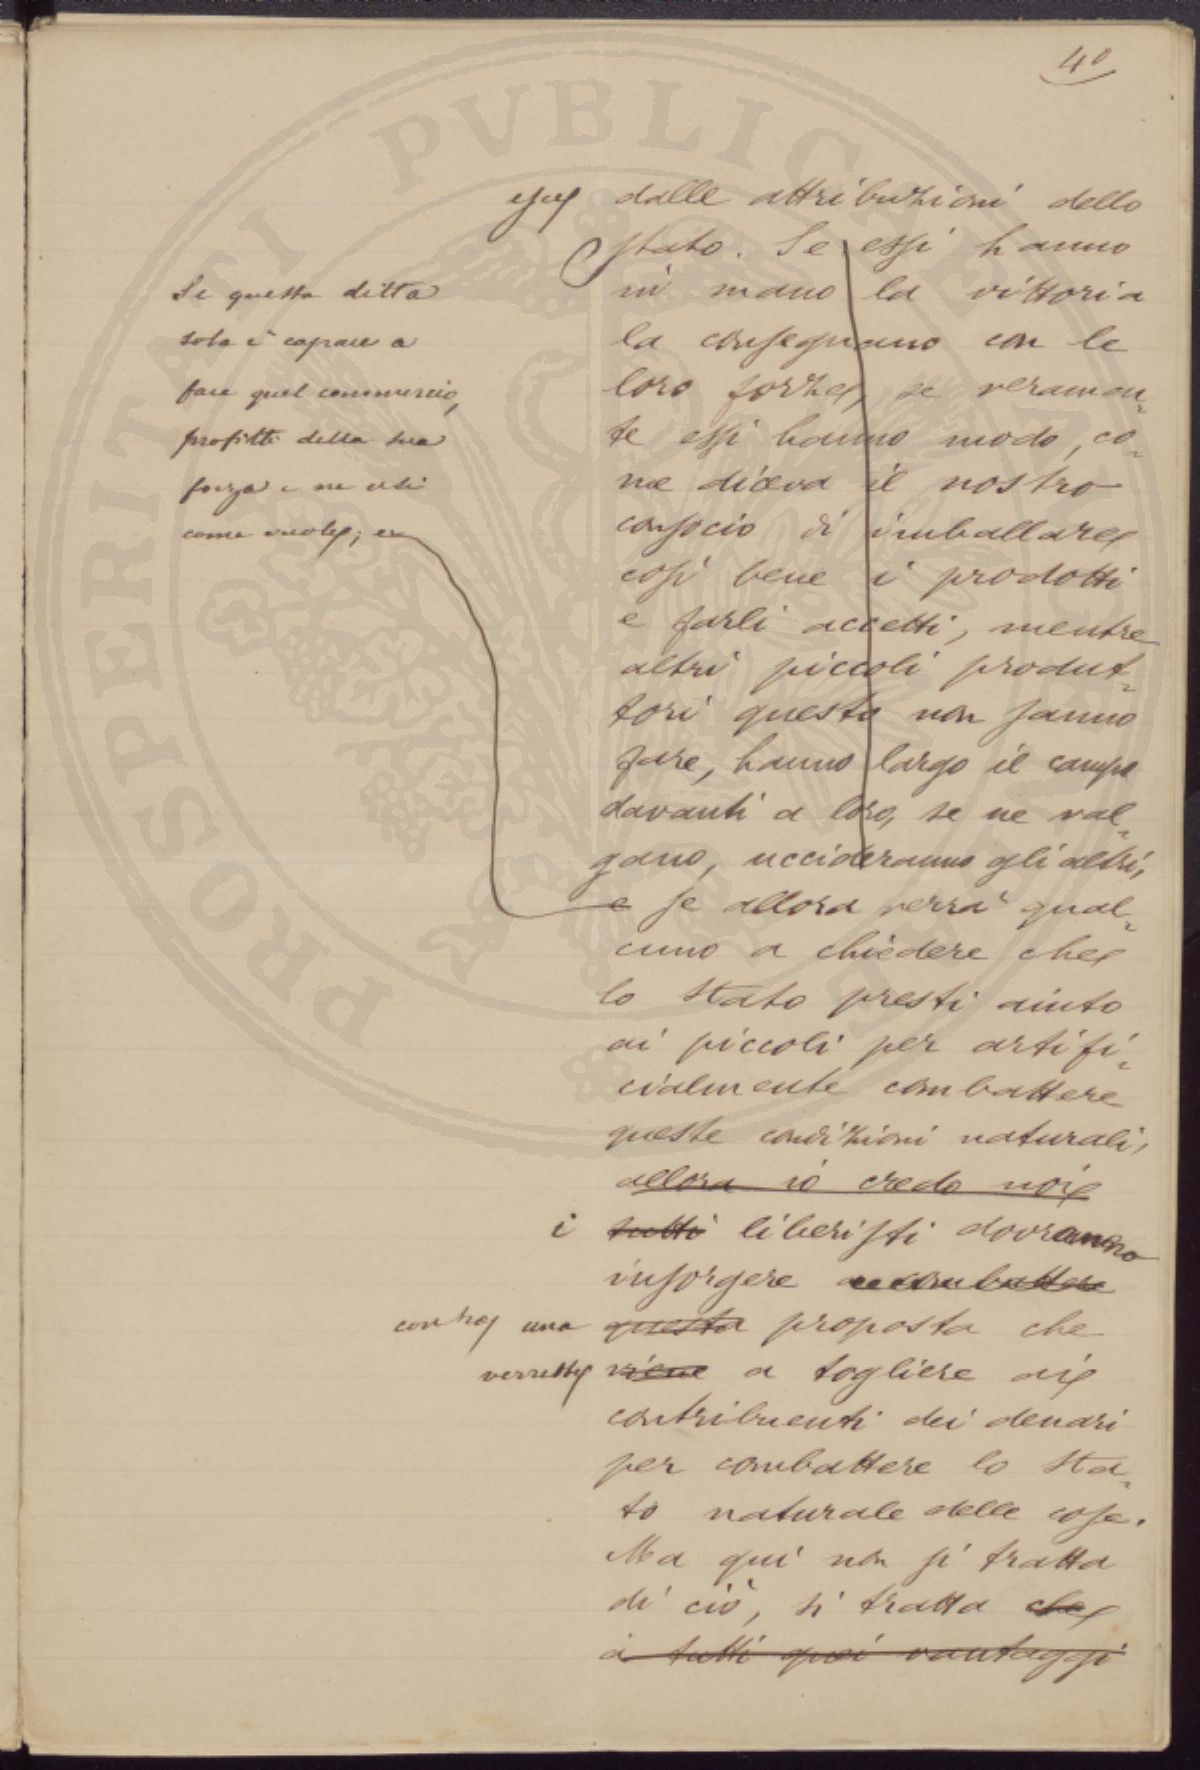 40
esce dalle attribuzioni dello
Stato. Se essi hanno
in mano la vittoria
la conseguano con le
loro forze, se veramen-
te essi hanno modo, co-
me diceva il nostro
consocio di imballare
così bene i prodotti
e farli accetti, mentre
altri piccoli produt-
tori questo non sanno
fare, hanno largo il campo
davanti a loro, se ne val-
gano, uccideranno gli altri,
e se allora verrà qual-
cuno a chiedere che
lo Stato presti aiuto
ai piccoli per artifi-
cialmente combattere
queste condizioni naturali,
allora io credo noi
i tutti liberisti dovranno
insorgere a combattere
contro una questa proposta che
verrebbe viene a togliere ai
contribuenti dei denari
per combattere lo Sta-
to naturale delle cose.
Ma qui non si tratta
di ciò, si tratta che
a tutti quei vantaggi
Se questa ditta
sola è capace a
fare quel commercio,
profitti della sua
forza e ne usi
come vuole; e
PROSPERITATI PVBLICAE